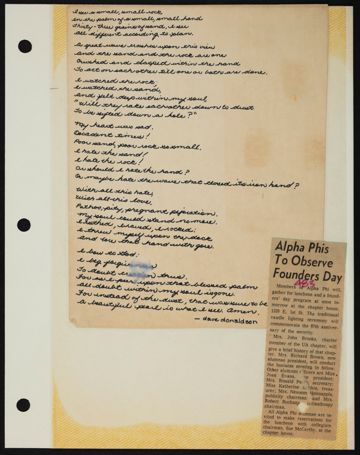 I see a small, small rock
in the palm of a small, small hand
Thirty-three grains of sand, I see
all different according to plan.
A great wave washes upon this view
and the sand and the rock are one
Crushed and clasped within the hand
To act on each other till one or both are done.
I watched the rock,
I watched the sand,
and felt deep within my soul,
"Will they rate each other down to dust
To be sifted down a hole?"
My heart was sad.
Decadent times!
Poor sand, poor rock so small.
I hate the sand!
I hate the rock!
Or should I hate the hand?
Or maybe hate the wave that closed its iron hand?
With all this hate,
With all this love,
Pathos, pity, pregnant
My soul could stand no more.
I writhed, I raved, I rocked;
I threw myself upon the deck
and You that hand with gore.
I bow to thee!
I beg
To doubt thee
For as I gaze upon that blessed palm
all doubt within my soul is gone.
For instead of the dust, that was sure to be
a beautiful pearl is what I see. Amen.
— dave donaldson
Alpha Phis
To Observe
Founders Day
Members of Alpha Phi will
gather for luncheon and a found-
ers' day program at noon to-
morrow at the chapter house,
1220 E. 1st St. The traditional
candle lighting ceremony will
commemorate the 89th anniver-
sary of the society.
Mrs. John Brooks, charter
member of the UA chapter, will
give a brief history of that chap-
ter. Mrs. Richard Brown, new
alumnae president, will conduct
the business meeting
Other alumnae
Joan Evans, president;
Mrs. Ronald secretary;
Miss Katherine
urer; Mrs.
publicity chairman, and Mrs.
Robert philanthropy
chairman.
All Alpha Phi alumnae are in-
vited to make reservations for
the luncheon with collegiate
chairman, Sue McCarthy, at the
chapter house.